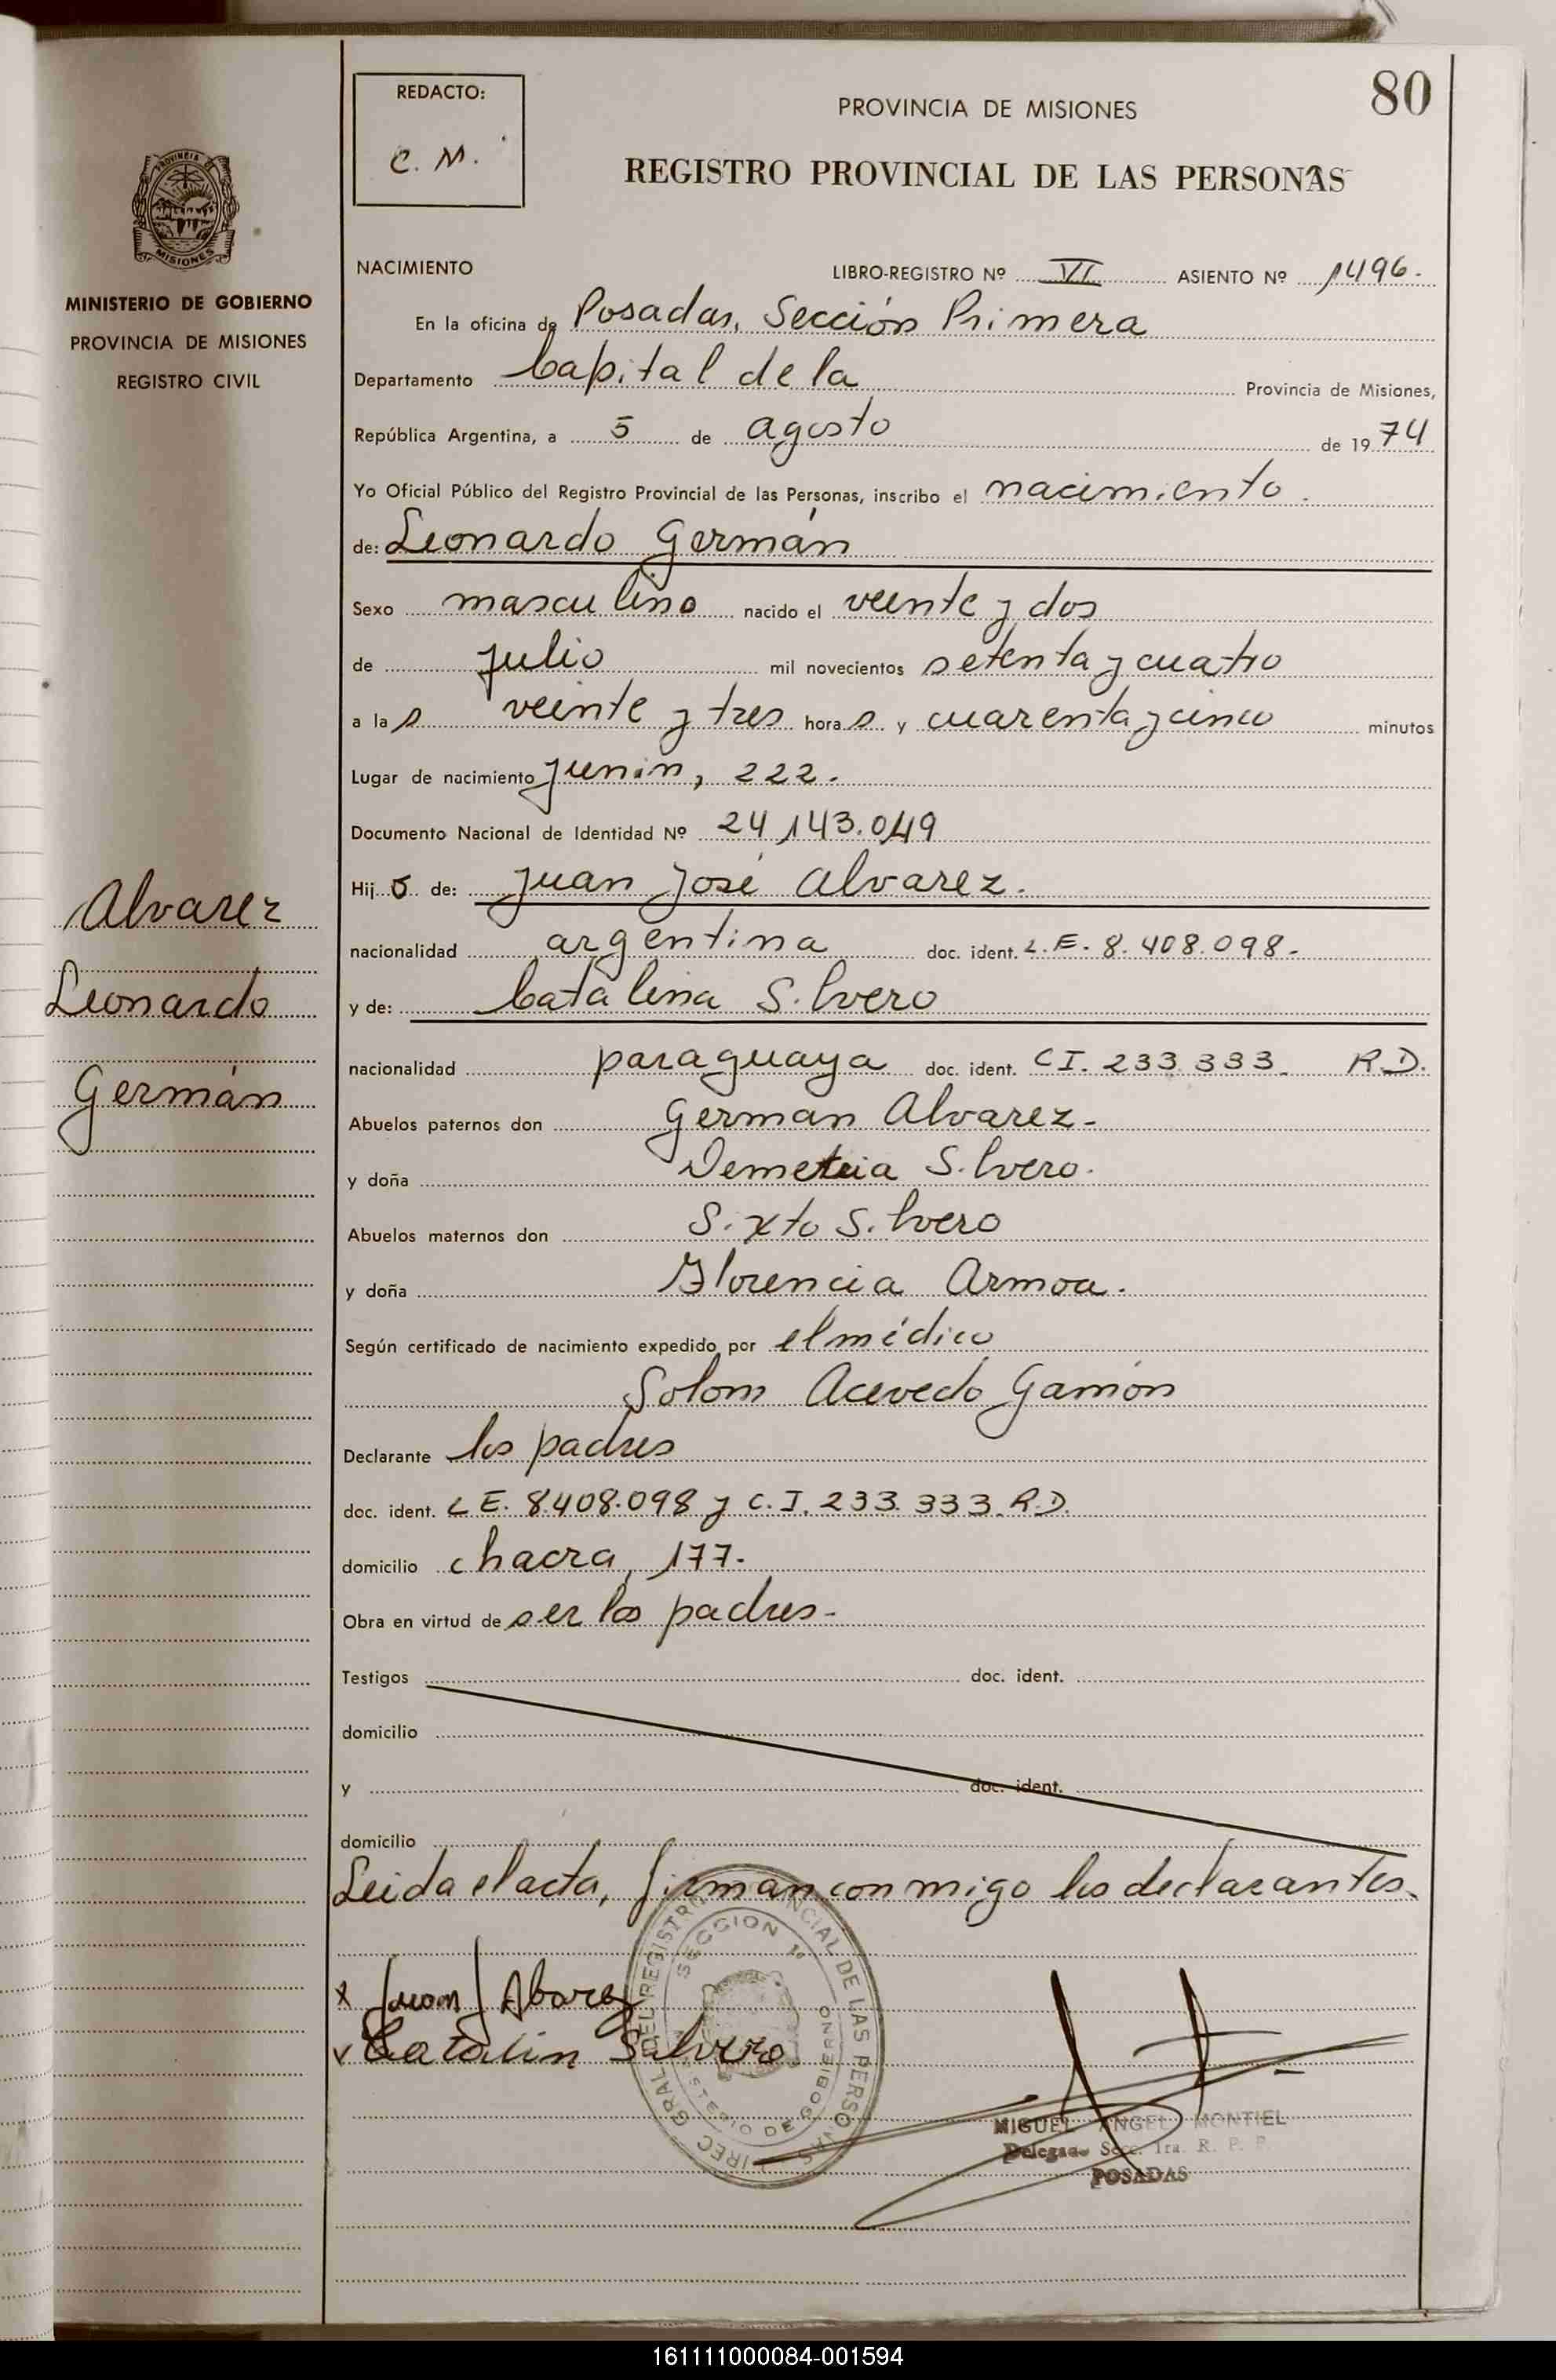 80
REDACTO:
C. M.
PROVINCIA DE MISIONES
REGISTRO PROVINCIAL DE LAS PERSONAS
PROVINCIA DE
MISIONES
MINISTERIO DE GOBIERNO
PROVINCIA DE MISIONES
REGISTRO CIVIL
NACIMIENTO LIBRO-REGISTRO Nº VI ASIENTO Nº 1496.
En la oficina de Posadas, Sección Primera
Departamento Capital de la Provincia de Misiones,
República Argentina, a 5 de agosto de 1974
Yo Oficial Público del Registro Provincial de las Personas, inscribo el nacimiento.
de: Leonardo Germán
Sexo masculino nacido el veinte y dos
de julio mil novecientos setenta y cuatro
a las veinte y tres horas y cuarenta y cinco minutos
Lugar de nacimiento Junin, 222.
Documento Nacional de Identidad Nº 24.143.049
Hijo de: Juan José Alvarez.
nacionalidad argentina doc. ident. L.E. 8.408.098.-
y de: Catalina Silvero
nacionalidad paraguaya doc. ident. CI. 233.333. R.D.
Abuelos paternos don German Alvarez-
y doña Demetria Silvero.
Abuelos maternos don Sixto Silvero
y doña Florencia Armoa.
Según certificado de nacimiento expedido por el médico
Acevedo Gamón
Declarante los padres
doc. ident. L E. 8.408.098 y C.I. 233.333. R.D.
domicilio chacra, 177.
Obra en virtud de ser los padres-
Testigos doc. ident.
domicilio
y doc. ident.
domicilio
Leida el acta, firman conmigo los declarantes.
Alvarez
Leonardo
Germán
x Juan J Alvarez
v Catalin Silvero
SECCION 1ª
DE LAS PERSONAS
MINISTERIO DE GOBIERNO
MIGUEL ANGEL MONTIEL
Delegado Secc. 1ra. R. P. P.
POSADAS
161111000084-001594